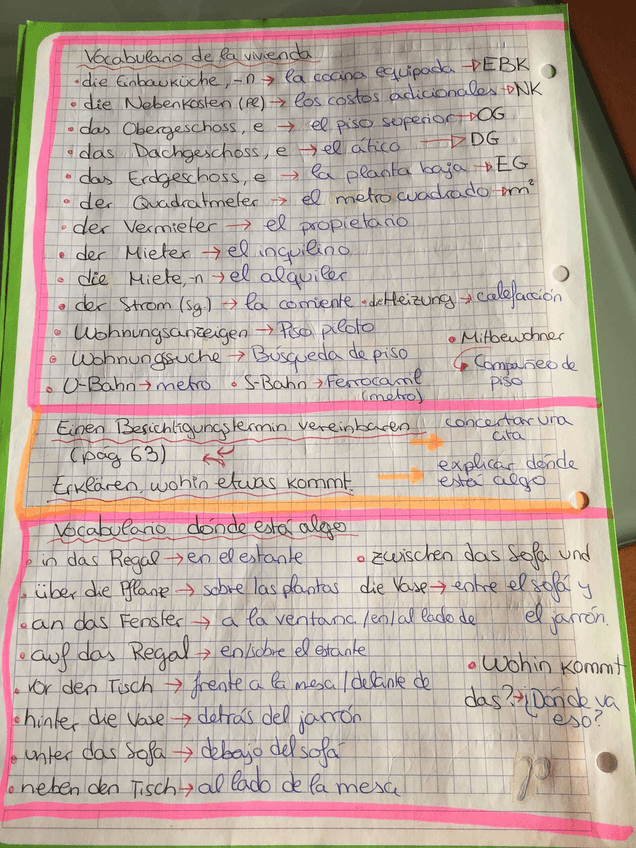 Vocabulario de la vivienda
• die Einbauküche, -n → la cocina equipada → EBK
• die Nebenkosten (Pl) → los costos adicionales → NK
• das Obergeschoss, e → el piso superior → OG
• das Dachgeschoss, e → el ático → DG
• das Erdgeschoss, e → la planta baja → EG
• der Quadratmeter → el metro cuadrado → m²
• der Vermieter → el propietario
• der Mieter → el inquilino
• die Miete, -n → el alquiler
• der Strom (Sg.) → la corriente • die Heizung → calefacción
• Wohnungsanzeigen → Piso piloto
• Mitbewohner
• Wohnungsuche → Búsqueda de piso
Compañeo de
piso
• U-Bahn → metro • S-Bahn → Ferrocarril
(metro)
Einen Besichtigungstermin vereinbaren
(pág 63)
→ concertar una
cita
Erklären, wohin etwas kommt.
→ explicar dónde
está algo
Vocabulario dónde está algo
• in das Regal → en el estante
• zwischen das Sofa und
die Vase → entre el sofá y
el jarrón.
• über die Pflanze → sobre las plantas
• an das Fenster → a la ventana/en/al lado de
• auf das Regal → en/sobre el estante
• vor den Tisch → frente a la mesa/delante de
• Wohin kommt
das? → ¿Dónde va
eso?
• hinter die Vase → detrás del jarrón
• unter das Sofa → debajo del sofá
• neben den Tisch → al lado de la mesa